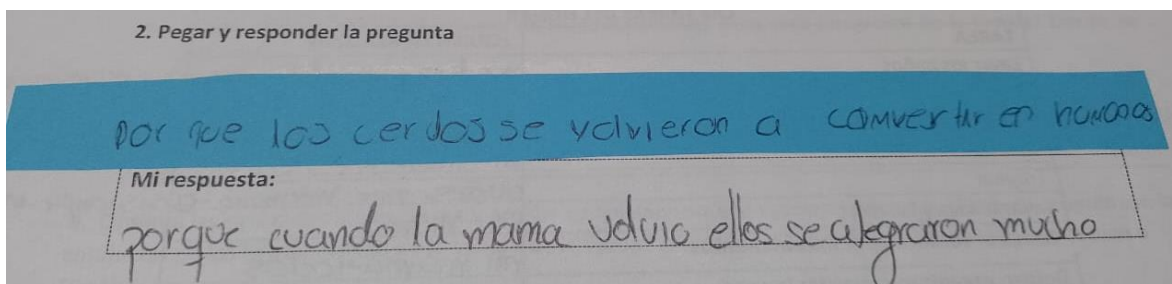 2. Pegar y responder la pregunta
por que los cerdos se volvieron a comvertir en humanos
Mi respuesta:
porque cuando la mama volvio ellos se alegraron mucho